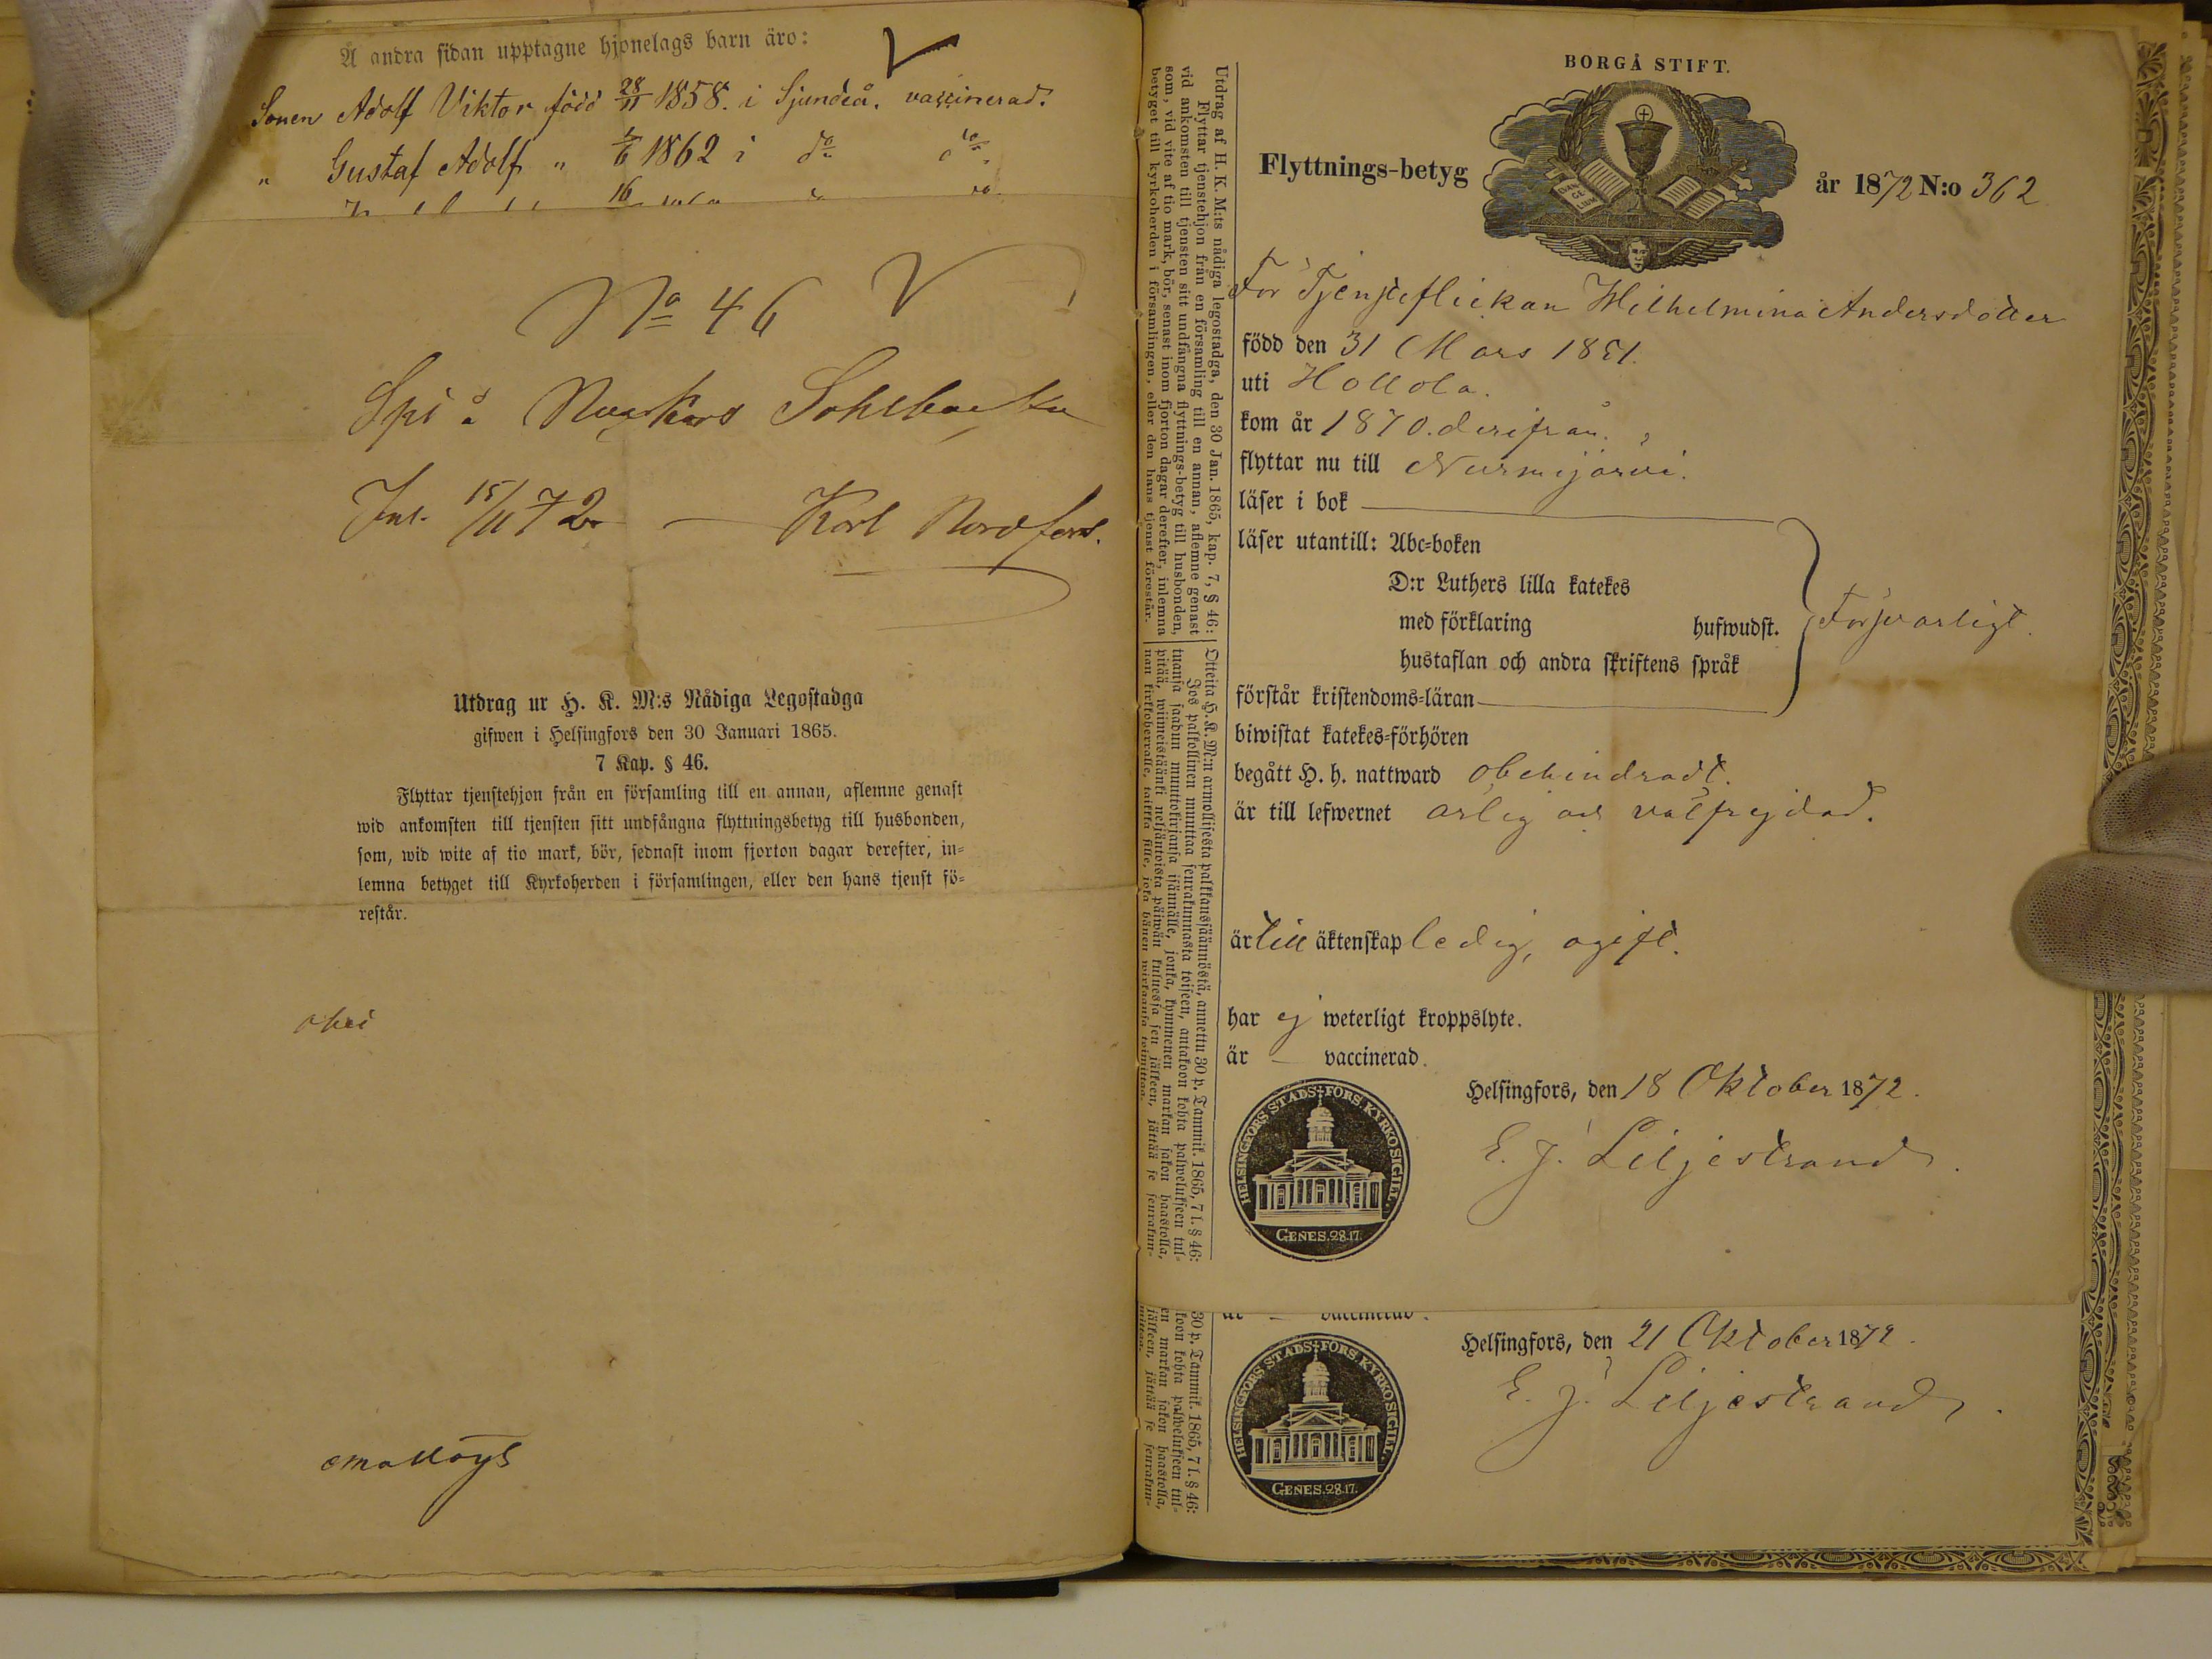 Å andra sidan upptagne hjonelags barn äro:
Sonen Adolf Viktor född 28/11 1858. i Sjundeå. vaccinerad.
" Gustaf Adolf " 1862 i do do
16
No 46
Inl. 15/11 72 — Karl Nordfors.
Utdrag ur H. K. M:s Nådiga Legostadga
gifwen i Helsingfors den 30 Januari 1865.
7 Kap. § 46.
Flyttar tjenstehjon från en församling till en annan, aflemne genast
wid ankomsten till tjensten sitt undfångna flyttningsbetyg till husbonden,
som, wid wite af tio mark, bör, sednast inom fjorton dagar derefter, in-
lemna betyget till Kyrkoherden i församlingen, eller den hans tjenst fö-
restår.
Utdrag af H. K. M:ts nådiga legostadga, den 30 Jan. 1865, kap. 7, § 46:
Flyttar tjenstehjon från en församling till en annan, aflemne genast
vid ankomsten till tjensten sitt undfångna flyttnings-betyg till husbonden,
som, vid vite af tio mark, bör, senast inom fjorton dagar derefter, inlemna
betyget till kyrkoherden i församlingen, eller den hans tjenst förestår.
Otteita H. K. M:n armollisesta palkkaussäännöstä, annettu 30 p. Tammik. 1865, 7 l. § 46:
Jos palkollinen muuttaa seurakunnasta toiseen, antakoon kohta palwelukseen tul-
tuansa saadun muuttokirjansa isännälle, jonka, kymmenen markan sakon haastolla,
pitää, wiimeistäänki neljäntoista päiwän kuluessa sen jälkeen, jättää se seurakun-
nan kirkkoherralle, taikka sille, joka hänen wirkaansa toimittaa.
BORGÅ STIFT.
EVAN
GE
LIUM
Flyttnings-betyg år 1872 N:o 362
För Tjensteflickan Wilhelmina Andersdotter
född den 31 Mars 1851.
uti Hollola.
kom år 1870. derifrån.
flyttar nu till Nurmijärvi.
läser i bok
läser utantill: Abc-boken
D:r Luthers lilla katekes
med förklaring hufwudst. Försvarligt.
hustaflan och andra skriftens språk
förstår kristendoms-läran
biwistat katekes-förhören
begått H. h. nattward obehindradt.
är till lefwernet ärlig och välfrejdad.
är till äktenskap ledig, ogift.
har ej weterligt kroppslyte.
är — vaccinerad.
Helsingfors, den 18 Oktober 1872.
E. J. Liljestrand.
HELSINGFORS STADS FÖRS. KYRKOSIGILL.
GENES. 28.17.
är — vaccinerad.
Helsingfors, den 21 Oktober 1872.
E. J. Liljestrand.
HELSINGFORS STADS FÖRS. KYRKOSIGILL.
GENES. 28.17.
30 p. Tammik. 1865, 7 l. § 46:
koon kohta palwelukseen tul-
en markan sakon haastolla,
jälkeen, jättää se seurakun-